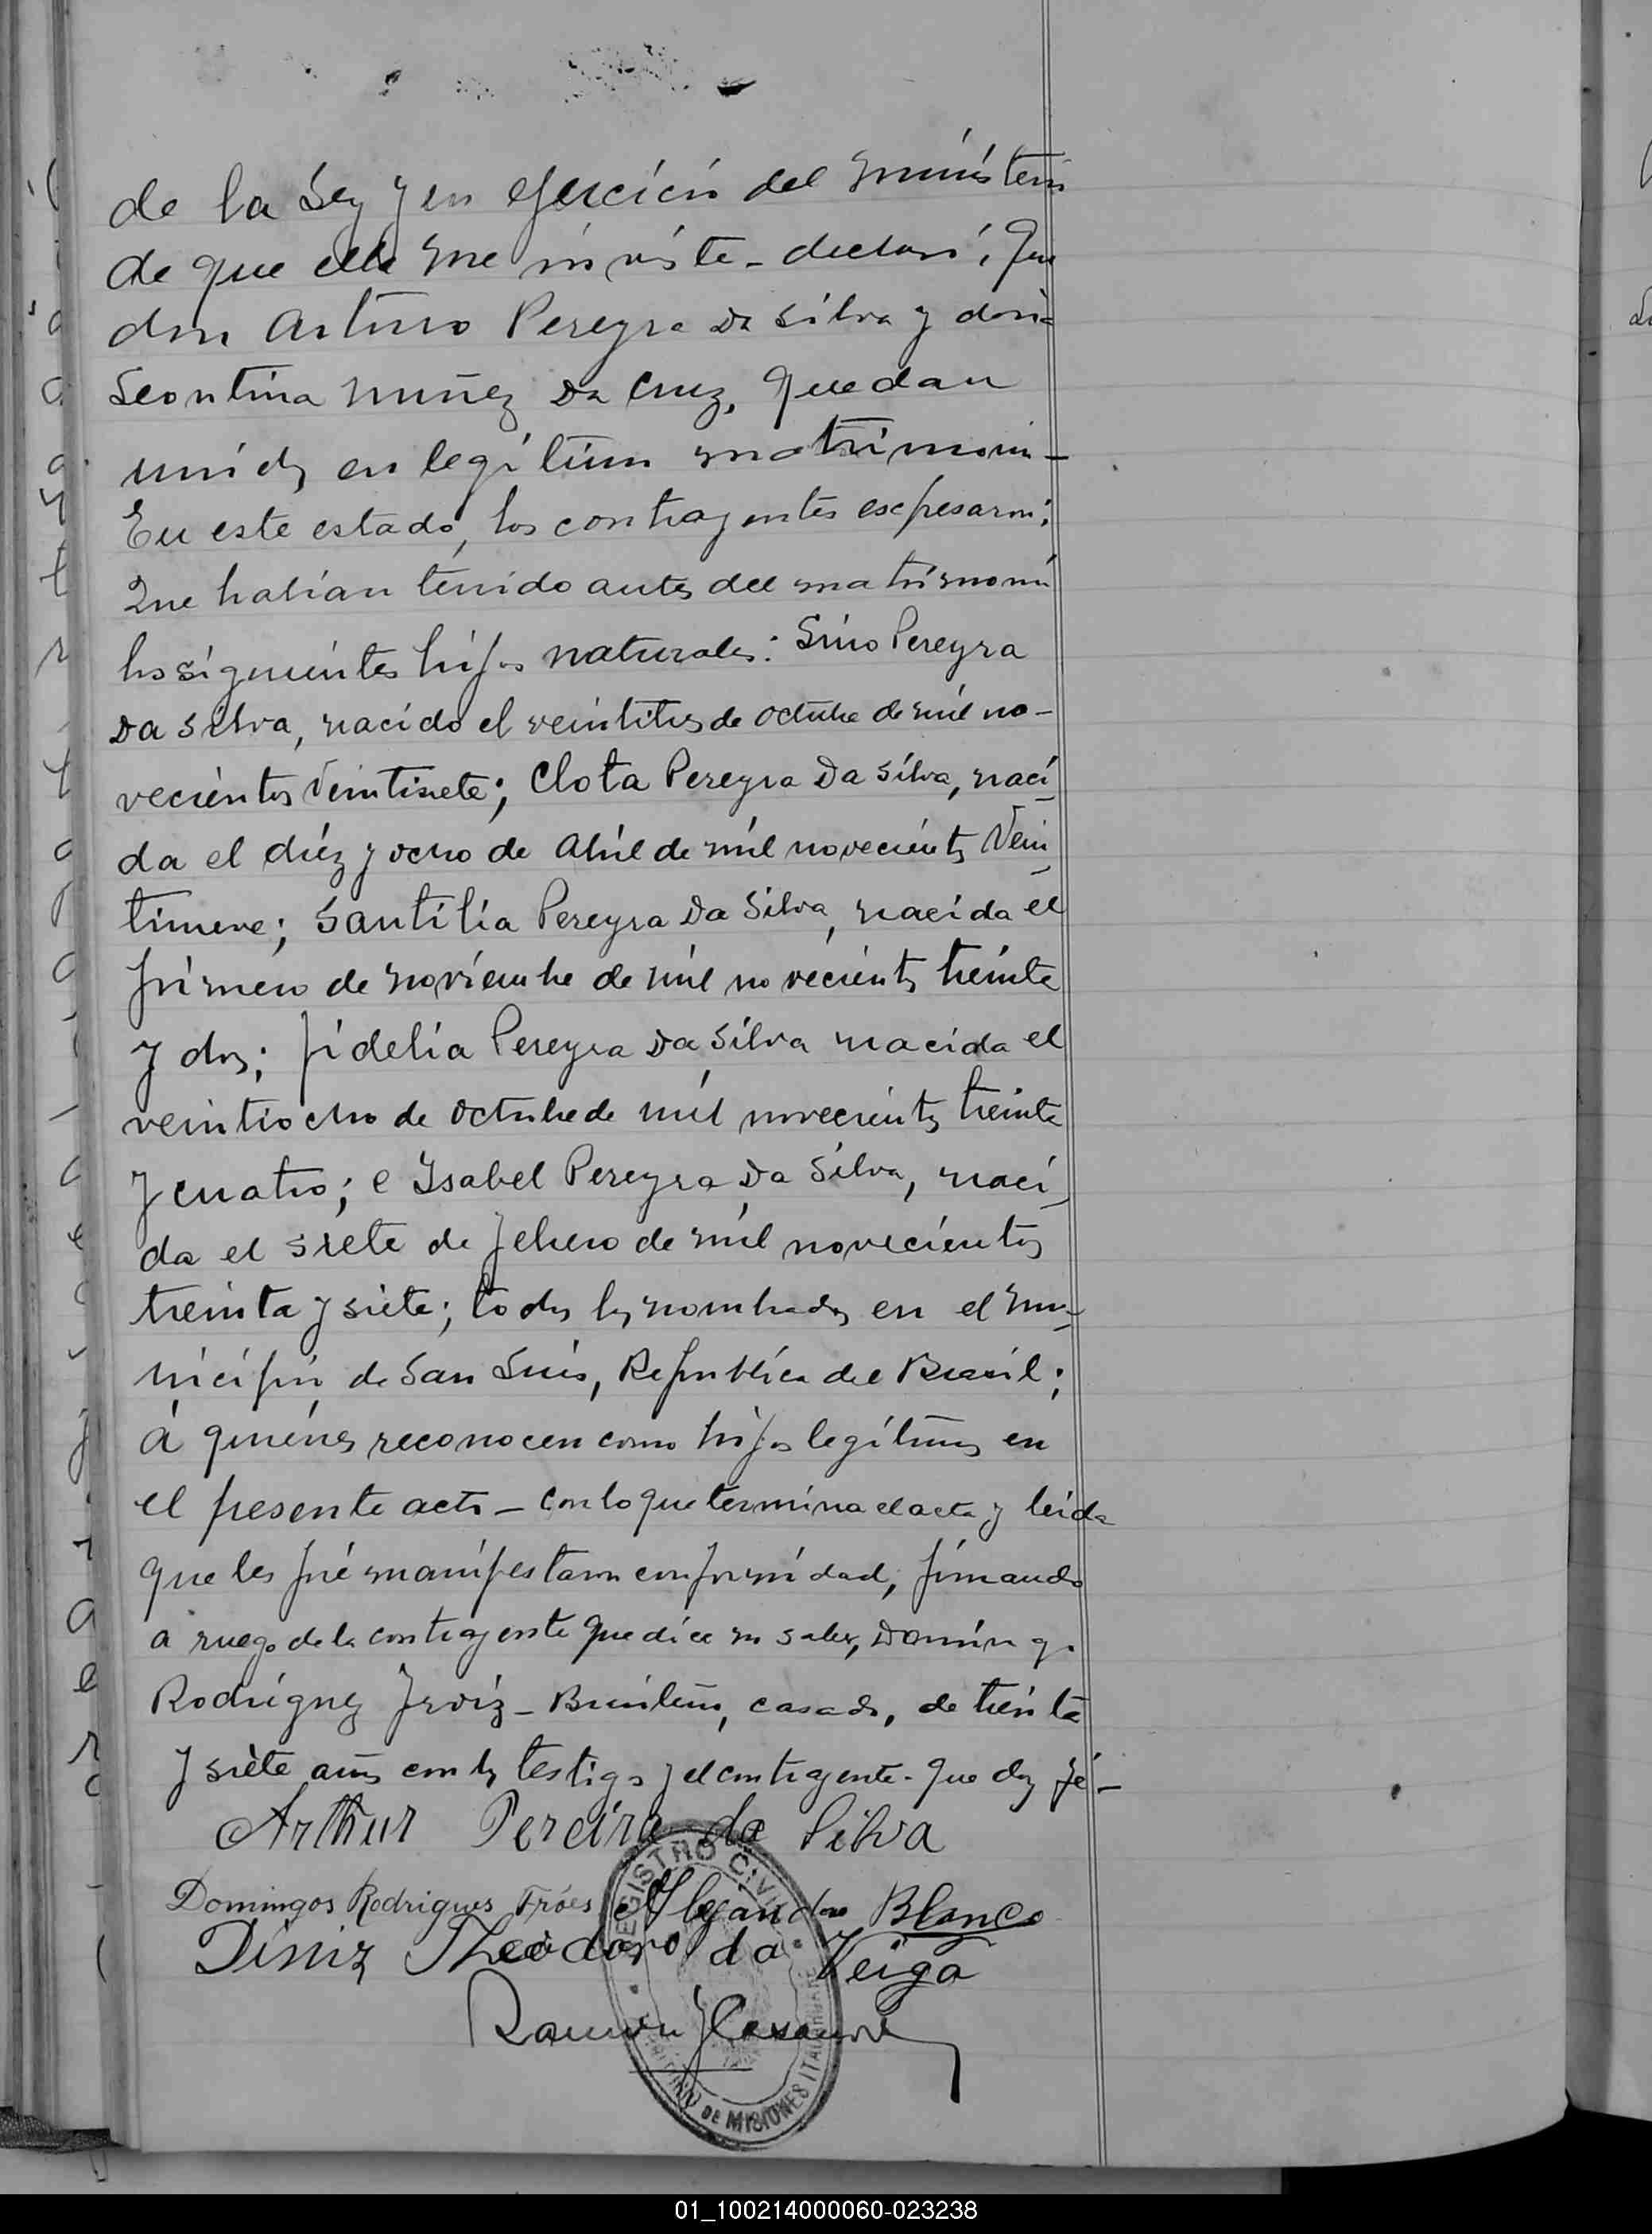 de la Ley y en ejercicio del ministerio
de que ella me inviste - declaró, Que
don Arturo Pereyra Da Silva y doña
Leontina Nuñez Da Cruz, quedan
unidos en legítimo matrimonio -
En este estado, los contrayentes expresaron:
Que habían tenido antes del matrimonio
los siguientes hijos naturales: Lino Pereyra
Da Silva, nacido el veintitres de octubre de mil no-
vecientos Veintisiete; Clota Pereyra Da Silva, naci-
da el diez y ocho de Abril de mil novecientos Vein-
tinueve; Santilia Pereyra Da Silva, nacida el
primero de noviembre de mil novecientos treinta
y dos; fidelia Pereyra Da Silva nacida el
veintiocho de octubre de mil novecientos treinta
y cuatro; e Ysabel Pereyra Da Silva, naci-
da el siete de febrero de mil novecientos
treinta y siete; todos los nombrados en el mu-
nicipio de San Luis, República del Brasil;
á quiénes reconocen como hijos legítimos en
el presente acto - con lo que termina el acta y leida
que les fué manifestaron conformidad, firmando
a ruego de la contrayente que dice no saber, Domingo
Rodriguez - Brasileño, casado, de treinta
y siete años con los testigos y el contrayente - que doy fé -
Arthur Pereira da Silva
Domingos Rodrigues Fróes Alejandro Blanco
Diniz Theodoro da Veiga
Ramón
REGISTRO CIVIL
DE MISIONES
01_100214000060-023238